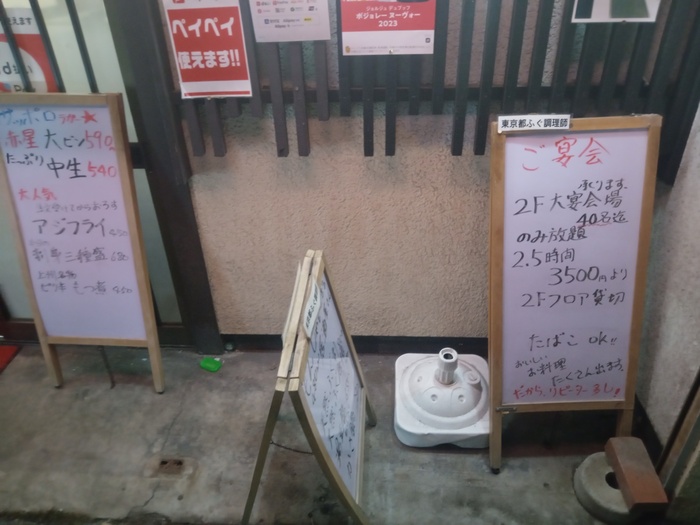 使えます
ペイペイ
使えます!!
ジョルジュ デュブッフ
ボジョレー ヌーヴォー
2023
サッポロラガー★
赤星 大ビン590
たっぷり
中生 540
大人気
アジフライ
刺身三種盛
もつ煮
東京都ふぐ調理師
ご宴会
承ります
2F 大宴会場
40名迄
のみ放題
2.5時間
3500円より
2Fフロア貸切
たばこ ok!!
おいしい
お料理
たくさん出ます
だから、リピーター多し!